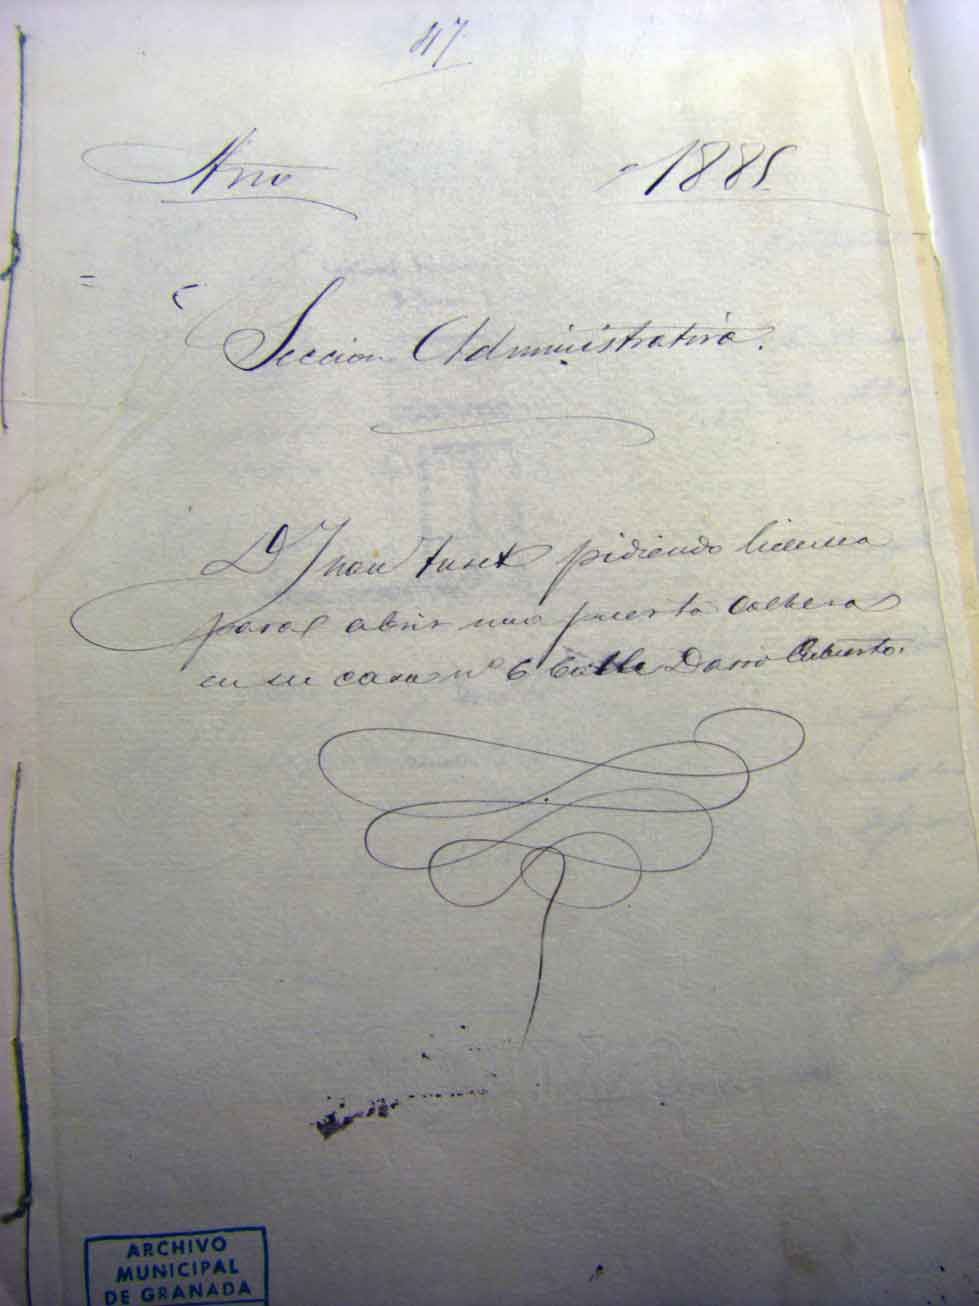 47
Año 1885
Seccion Administrativa.
Dn Juan pidiendo licencia
para abrir una puerta cochera
en su casa nº 6 Calle Darro Cubierto.
ARCHIVO
MUNICIPAL
DE GRANADA